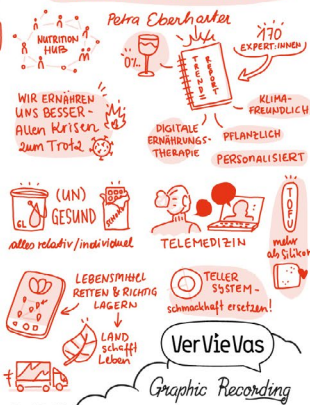 NUTRITION
HUB
Petra Eberharter
0%
TREND
REPORT
170
EXPERT:INNEN
WIR ERNÄHREN
UNS BESSER -
Allen Krisen
zum Trotz
KLIMA-
FREUNDLICH
DIGITALE
ERNÄHRUNGS-
THERAPIE
PFLANZLICH
PERSONALISIERT
GL
(UN)
GESUND
alles relativ/individuel
TELEMEDIZIN
TOFU
mehr
als Silikon
LEBENSMITTEL
RETTEN & RICHTIG
LAGERN
TELLER
SYSTEM -
schmackhaft ersetzen!
LAND
schafft
Leben
VerVieVas
Graphic Recording